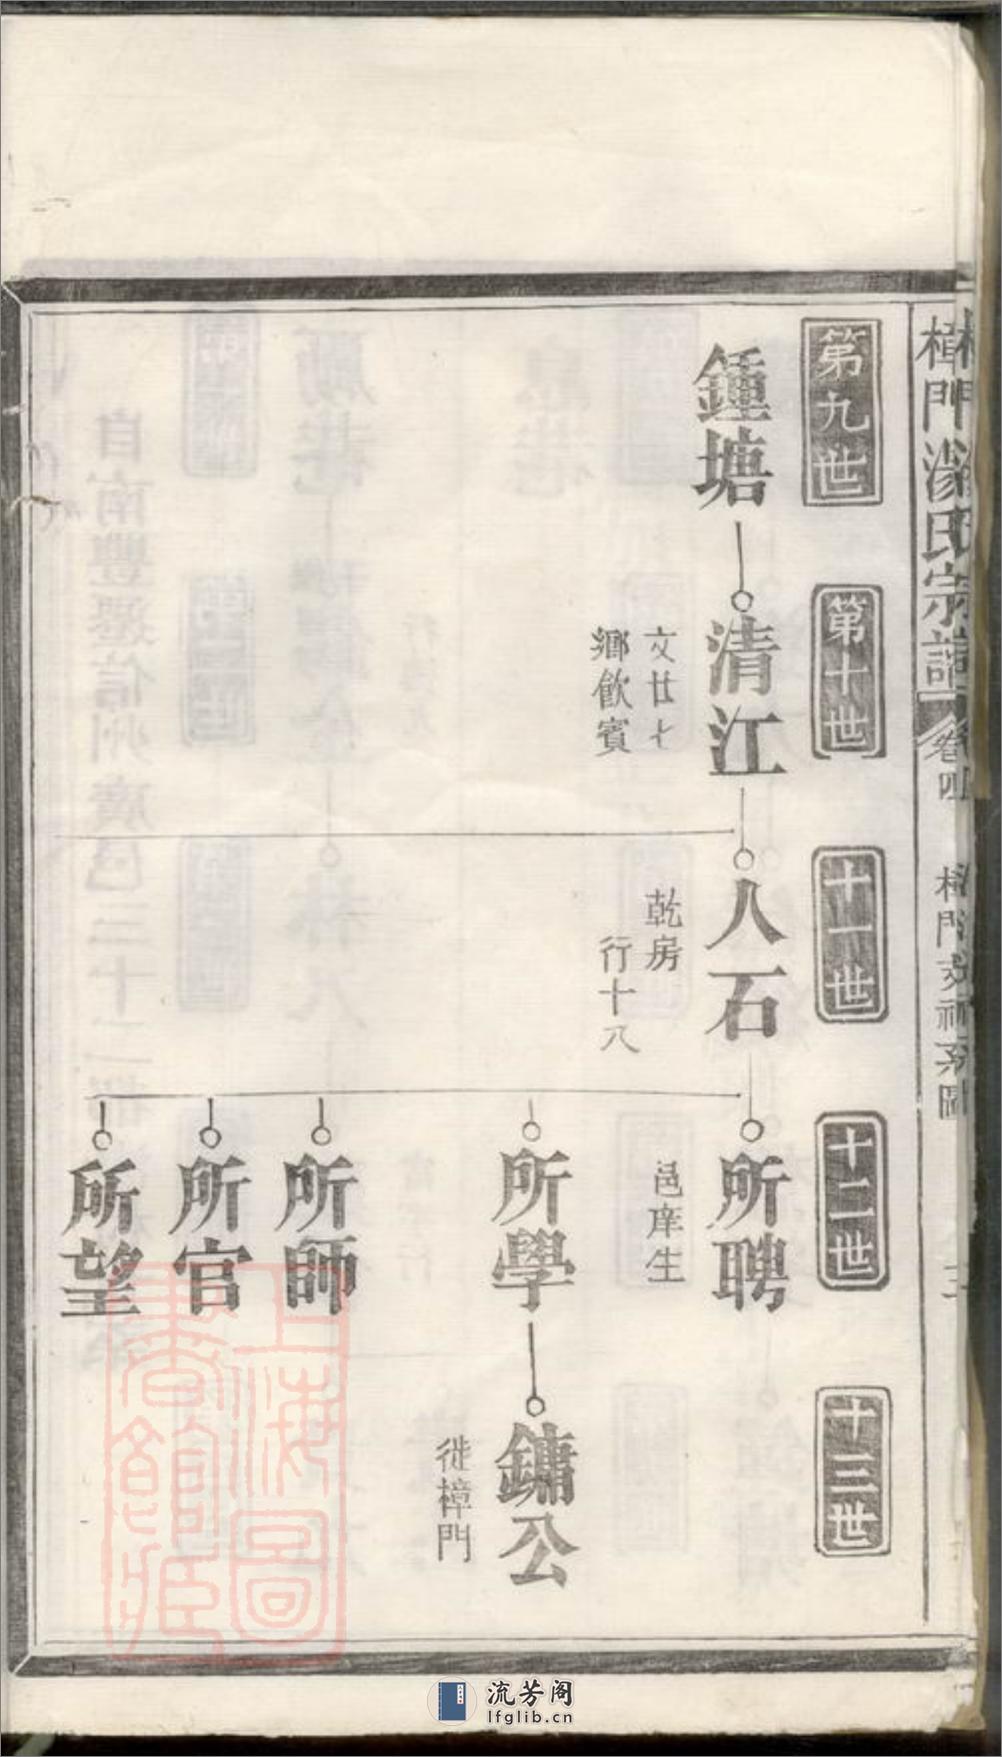 樟門
氏宗譜
卷四
樟門支祠系圖
第九世
第十世
十一世
十二世
十三世
鍾塘
清江
文廿七
鄉飲賓
人石
乾房
行十八
所聘
邑庠生
所學
鏞公
徙樟門
所師
所官
所望
上海圖
書館藏
流芳阁
lfglib.cn